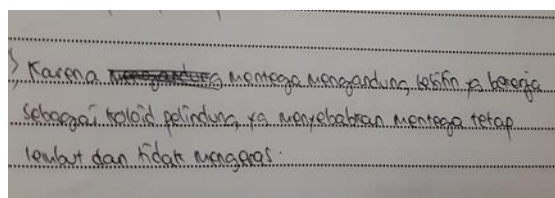 ) Karena mentega mengandung lesitin yg bekerja
sebagai koloid pelindung yg menyebabkan mentega tetap
lembut dan tidak mengeras.